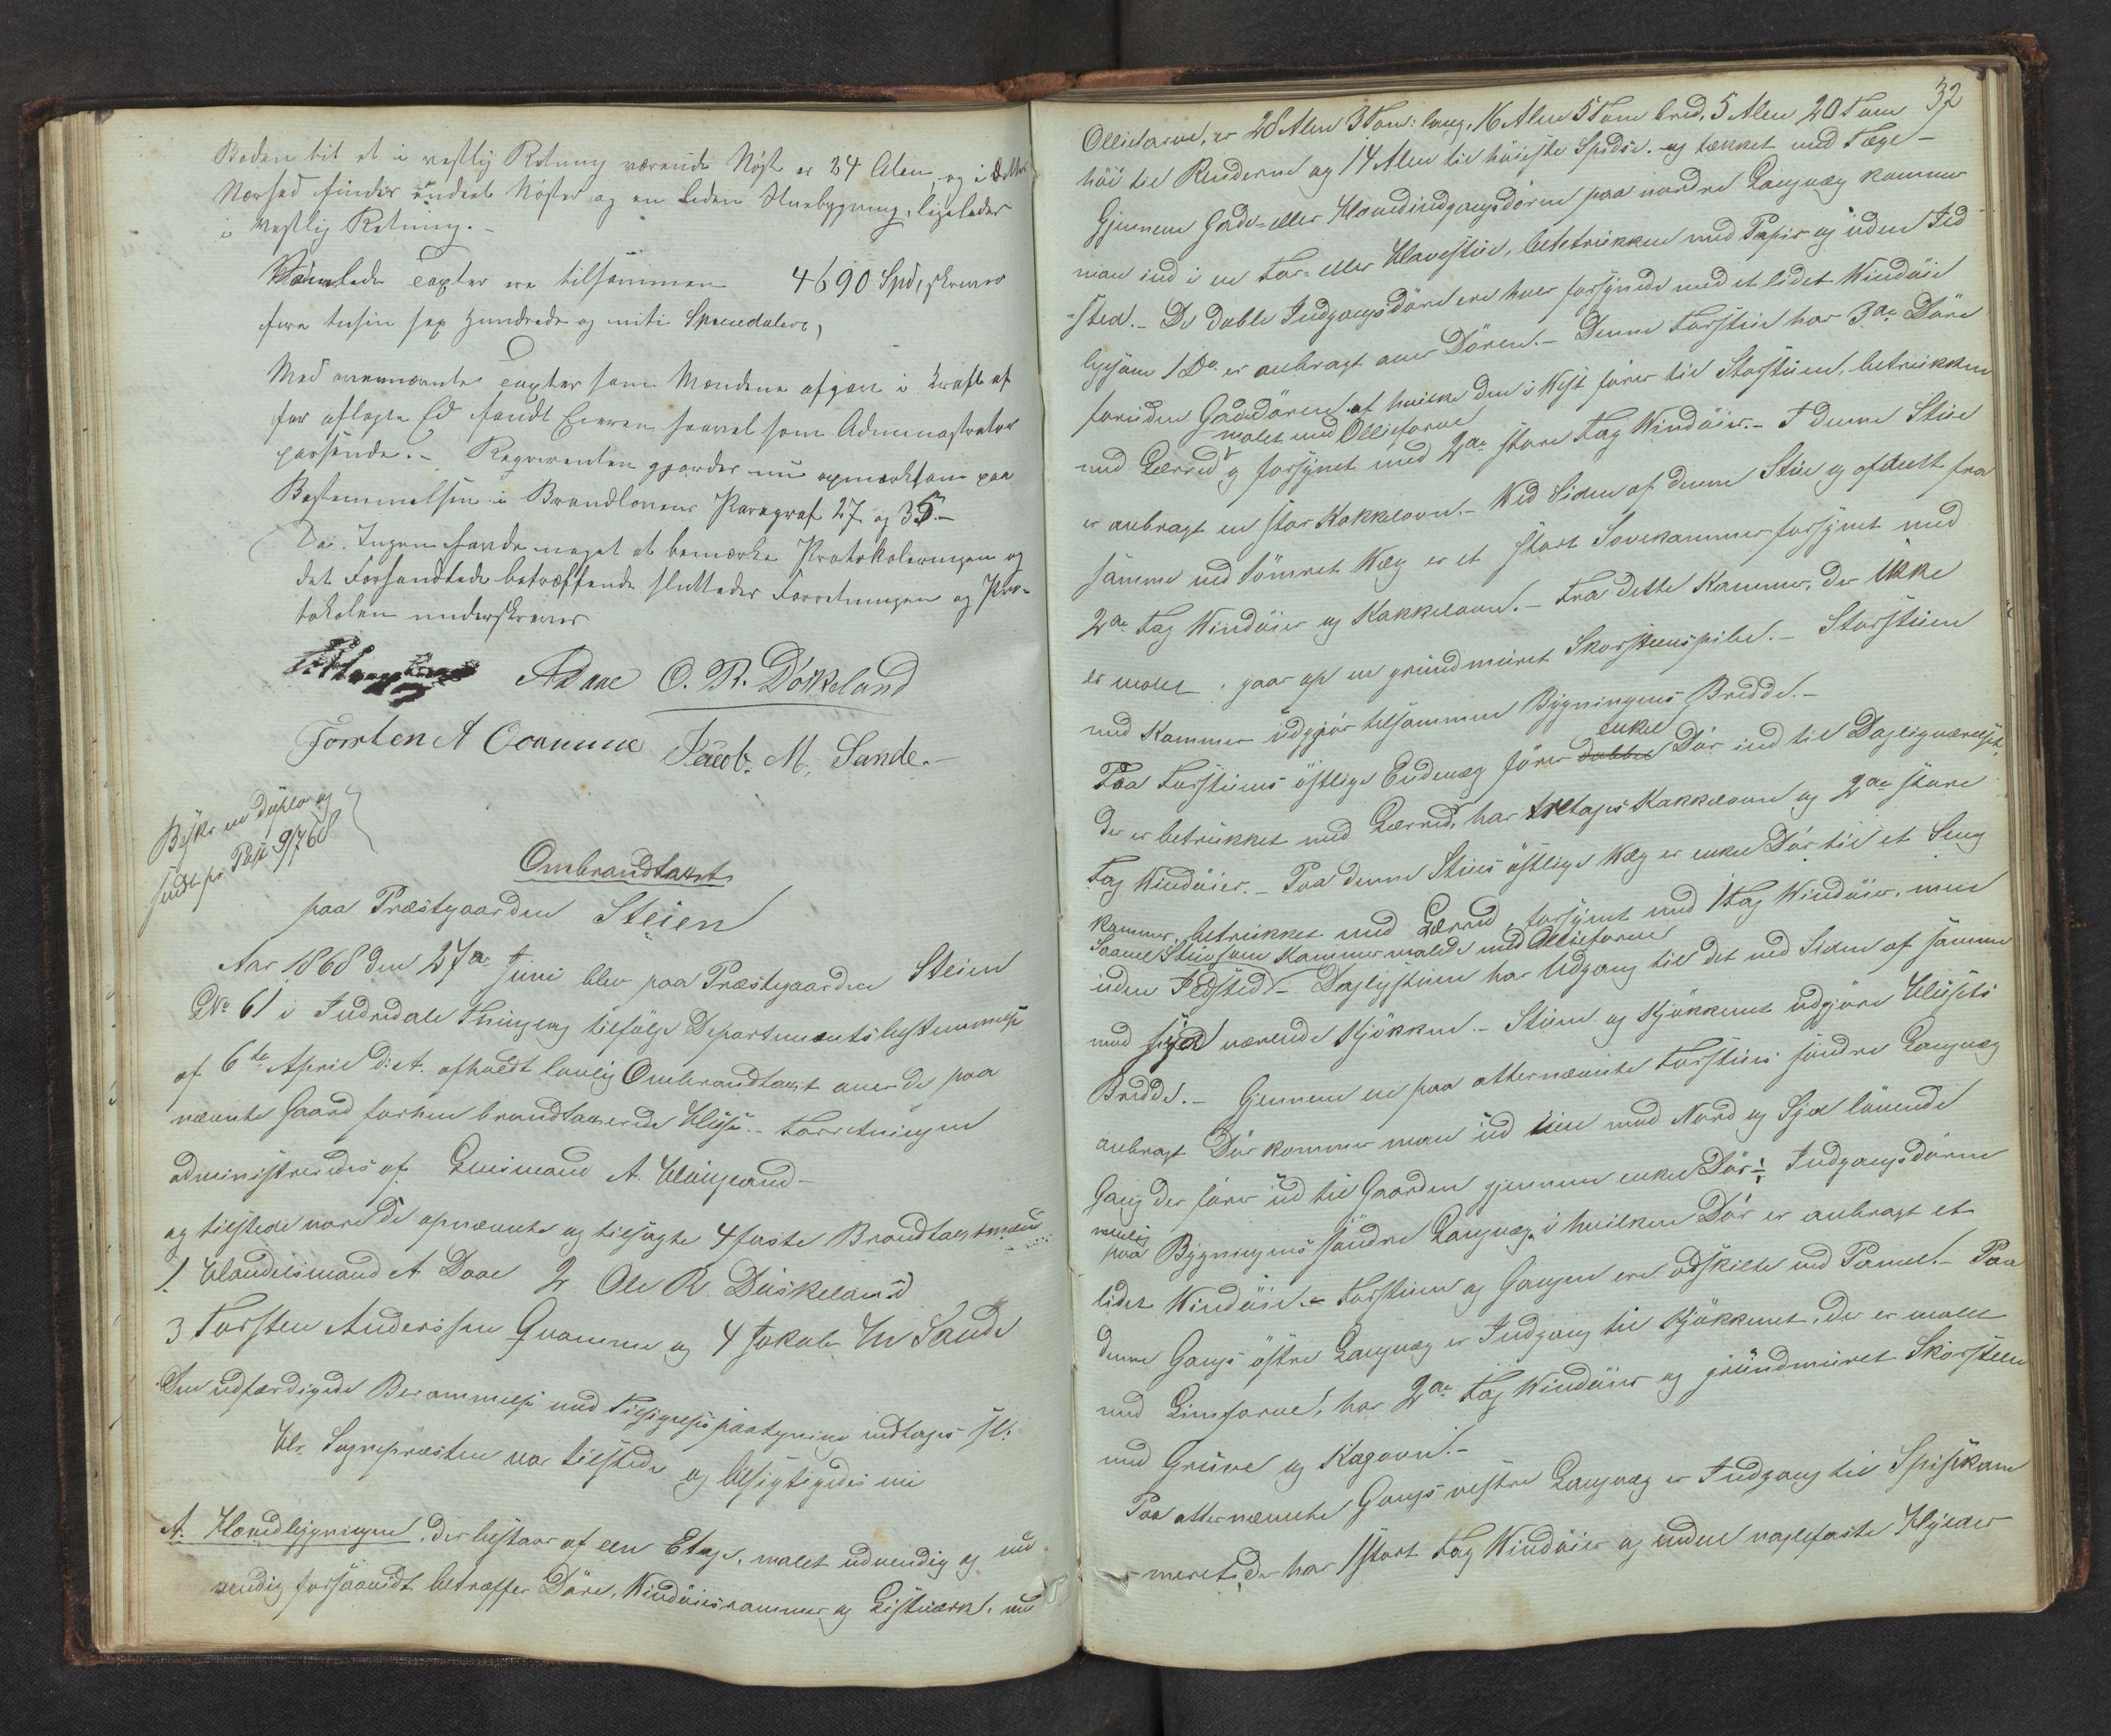 Boden til et i vestlig Retning værende Nøst er 24 Alen, og i dettes
Nærhed findes endeel Nøster og en liden Stuebygning, ligeledes
i vestlig Retning.-
Samtlede Taxter ere tilsammen 4690 Spd, skriver
fire tusin sex hundrede og niti Speciedaler,
Med ovennævnte Taxter som Mændene afgav i Kraft af
før aflagte Ed fandt Eieren saavel som Administrator
passende.- Reqvirenten gjordes nu opmærksom paa
Bestemmelsen i Brandlovens Paragraf 27 og 35.-
Da Ingen havde noget at bemærke Protokoleringen og
det Forhandlede betræffende sluttedes Forretningen og Pro-
tokolen underskreves
ADaae O. R. Döskeland
Torsten A Qvamme Jacob. M, Sande.-
Beskr en duplo og
sendt pr Post 9/7 68
Ombrandtaxt
paa Præstgaarden Steien
Aar 1868 den 27de Juni blev paa Præstegaarden Steien
GNo 61 i Indredale Thinglag tilfølge Departementsbestemmelse
af 6te April d: A. afholdt lovlig Ombrandtaxt over de paa
nævnte Gaard forhen brandtaxerede Huse.- Forretningen
administreredes af Lensmand A. Haugland-
og tilstede vare de opnævnte og tilsagte 4 faste Brandtaxtmænd
1. Handelsmand A Daae 2 Ole R. Döskeland
3 Torsten Anderssen Qvamme og 4 Jakob M Sande
Den udfærdigede Berammelse med Tilsigelsespaategning indtages sl:
Hr. Sognepræsten var tilstede og besigtigedes nu
A. Hovedbygningen, der bestaar af een Etage, malet udvendig og ind
vendig forsaavidt betræffer Döre, Vinduiesrammer og Listværk, med
32
Olliefarve, er 28 Alen 3 Tom: lang, 16 Alen 5 Tom bred, 5 Alen 20 Tom
høi til Renderne og 14 Alen til høieste Spidse. og tækket med Tægl-
Gjennem Gade- eller Hovedindgangsdøren paa nordre Langvæg kommer
man ind i en For- eller Havestue, bebetrukken med Papir og uden Ild
-sted.- De doble Indgangsdøre ere hver forsynede med et lidet Vindue
ligesom 1 Do er anbragt over Døren.- Denne Forstue har 3de Döre
foruden Gadedøren af hvilke den i Vest fører til Storstuen, betrukken
malet med Olliefarve
med Lærred og forsynet med 2de store Fag Vinduier.- I denne Stue
er anbragt en stor Kakkelovn.- Ved Siden af denne Stue og afdeelt fra
samme ved tömret Væg er et stort Sovekammer forsynet med
2de Fag Vinduier og Kakkelovn.- Fra dette Kammer, der ikke
er malet, gaar op en grundmuret Skorsteenspibe.- Storstuen
med Kammer udgjør tilsammen Bygningens Bredde.-
enkel
Paa Forstuens østlige Endevæg fører dobbel Dør ind til Dagligværelset
der er betrukket med Lærred, har tretages Kakkelovn og 2de store
Fag Vinduier.- Paa denne Stues østlige Væg er enkel Dør til et Seng
kammer, betrukket med Lærred, forsynet med 1 Fag Vinduier, men
Saavel Stue som Kammer malede med Olliefarve
uden Ildsted.- Dagligstuen har Udgang til det ved Siden af samme
mod syd værende Kjøkken.- Stuen og Kjøkkenet udgjøre Husets
Bredde.- Gjennem en paa atternævnte Forstues søndre Langvæg
anbragt Dør kommer man ud i en mod Nord og Syd løbende
Gang der fører ud til Gaarden gjennem enkel Dør ÷ Indgangsdøren
nemlig
paa Bygningens søndre Langvæg, i hvilken Dør er anbragt et
lidet Vindue.- Forstuen og Gangen ere adskilte ved Panel.- Paa
denne Gangs østre Langvæg er Indgang til Kjøkkenet, der er malet
med Limfarve, har 2de Fag Vinduier og grundmuret Skorsteen
med Gruve og Kagovn.-
Paa atternævnte Gangs vestre Langvæg er Indgang til Spiskam
-meret, der har 1 stort Fag Vinduier og endeel naglefaste Hylder